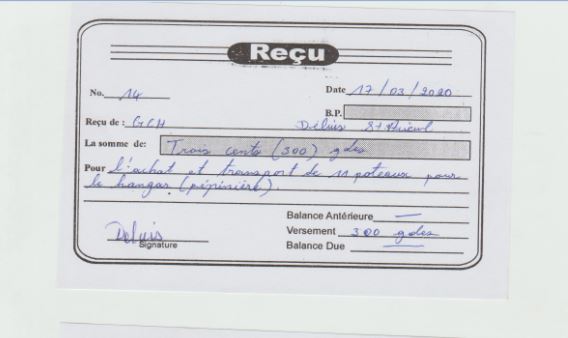 Reçu
No. 14 Date 17/03/2020
B.P.
Reçu de : GCH Déluis St
La somme de: Trois cents (300) gdes
Pour l'achat et transport de 11 poteaux pour
le hangar (pépinière).
Balance Antérieure —
Versement 300 gdes
Deluis
Signature
Balance Due —